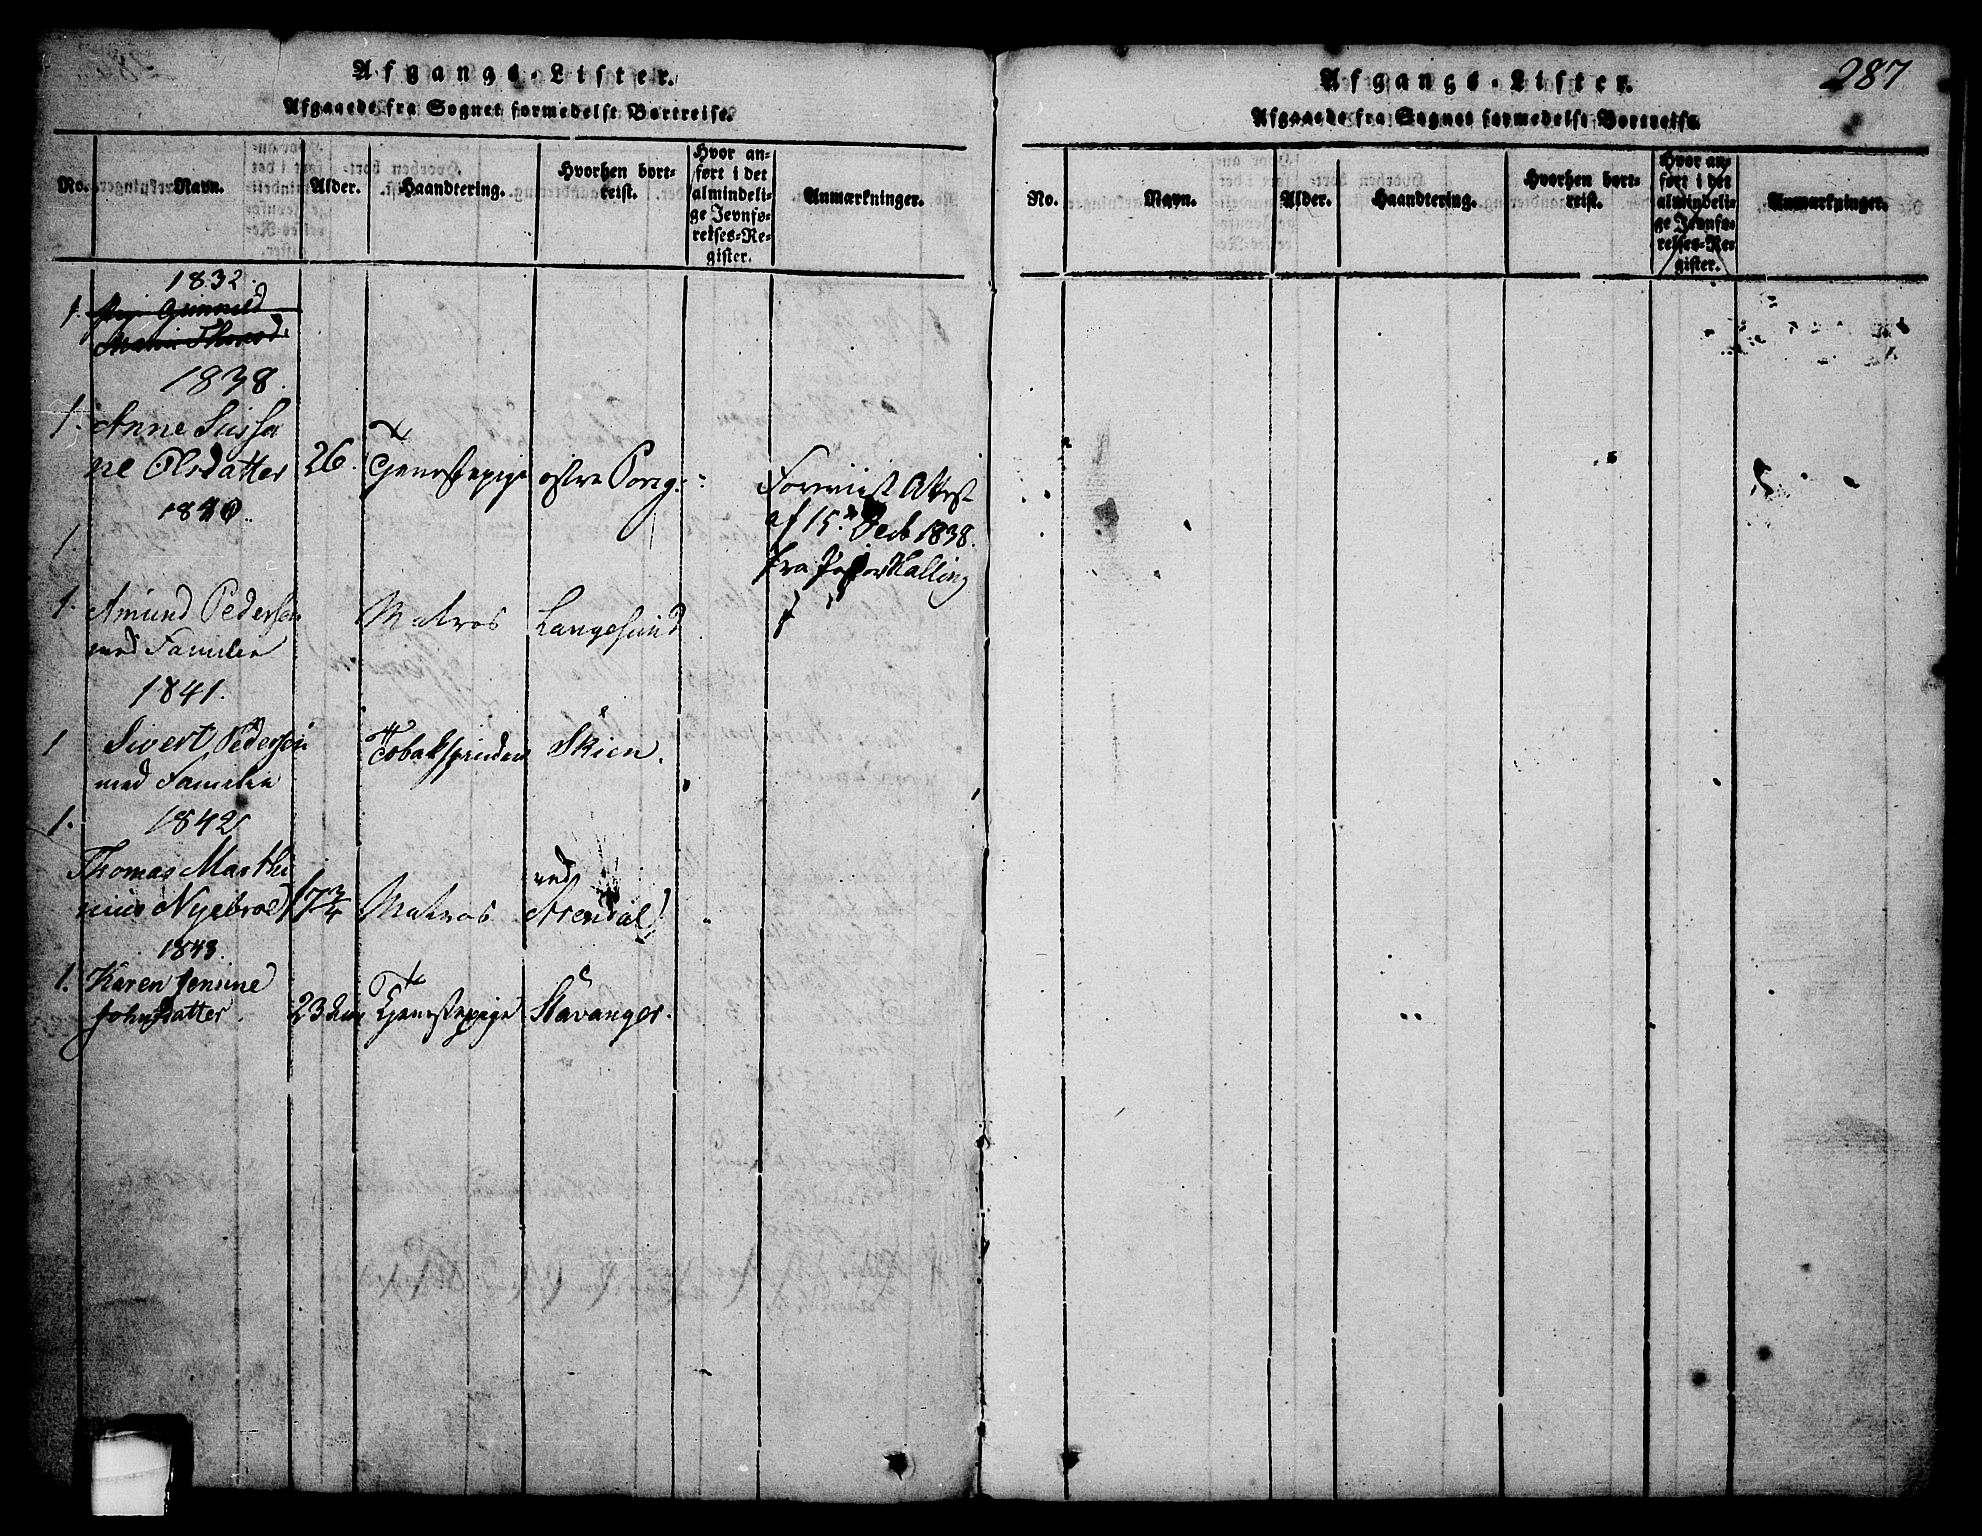 Afgangs-Lister.
Afgaaede fra Sognet formedelst Bortreise.
No.
Navn.
Alder.
Haandtering.
Hvorhen bort-
reist.
Hvor an-
ført i det
almindeli-
ge Jevnfø-
relses-Re-
gister.
Anmærkninger.
1832.
1.
Gunnild
Maria
1838.
1.
Anne Sussa
ne Olsdatter
26.
Tjenestepige
østre Porsg:
Foreviist Attest
af 15de Decb 1838.
fra Pastor Halling
1840.
1.
1.
Amund Pedersen
med Familie
Matros
Langesund
1841.
1
Sivert Pedersen
med Familie
Tobakspinder
Skien.
1842
1.
Thomas Marthi
nius Nyebroe
17 3/4
Matros
ved
Arendal
1843.
1.
Karen Jensine
Johnsdatter.
23
Tjenestepige
Stavanger.
287
Afgangs-Lister.
Afgaaede fra Sognet formedelst Bortreise
No.
Navn.
Alder.
Haandtering.
Hvorhen bort-
reist.
Hvor an-
ført i det
almindeli-
ge Jevnfø-
relses-Re-
gister.
Anmærkninger.